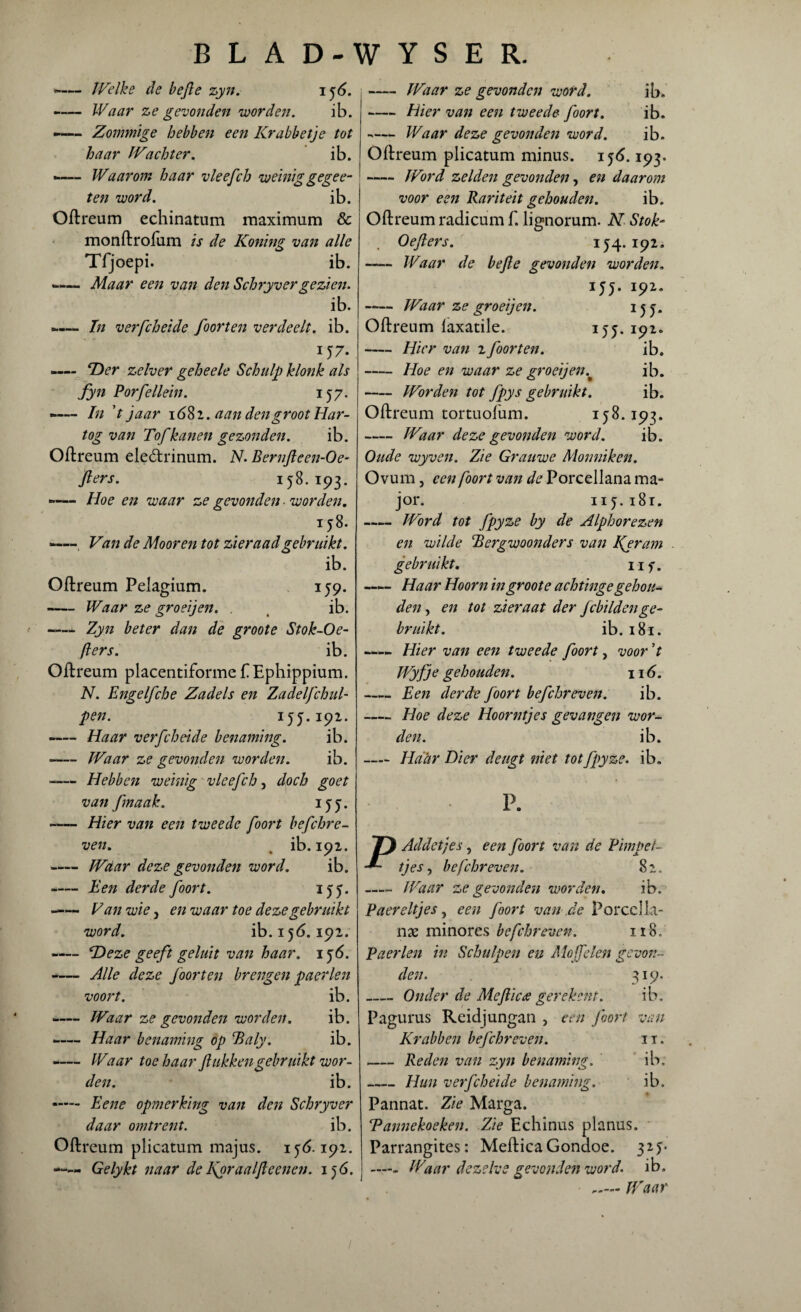 BLAD-WYSER.
—— Welke de beſte zyn. 156.
—— Waar ze gevonden worden. ib.
—— Zommige hebben een Krabbetje tot
haar Wachter. ib.
—— Waarom haar vleeſch weinig gegee-
ten word. ib.
Oſtreum echinatum maximum &
monſtroſum is de Koning van alle
Tſjoepi. ib.
—— Maar een van den Schryver gezien.
ib.
—— In verſcheide ſoorten verdeelt. ib.
157.
—— Der zelver geheele Schulp klonk als
fyn Porſellein. 157.
—— In 't jaar 1682. aan den groot Har-
tog van Toſkanen gezonden. ib.
Oſtreum electrinum. N. Bernſteen-Oe-
ſters. 158. 193.
—— Hoe en waar ze gevonden worden.
158.
—— Van de Mooren tot zieraad gebruikt.
ib.
Oſtreum Pelagium. 159.
—— Waar ze groeijen. ib.
—— Zyn beter dan de groote Stok-Oe-
ſters. ib.
Oſtreum placentiforme ſ. Ephippium.
N. Engelſche Zadels en Zadelſchul-
pen. 155. 192.
—— Haar verſcheide benaming. ib.
—— Waar ze gevonden worden. ib.
—— Hebben weinig vleeſch, doch goet
van ſmaak. 155.
—— Hier van een tweede ſoort beſchre-
ven. ib. 192.
—— Waar deze gevonden word. ib.
—— Een derde ſoort. 155.
—— Van wie, en waar toe deze gebruikt
word. ib. 156. 192.
—— Deze geeft geluit van haar. 156.
—— Alle deze ſoorten brengen paerlen
voort. ib.
—— Waar ze gevonden worden. ib.
—— Haar benaming op Baly. ib.
—— Waar toe haar ſtukken gebruikt wor-
den. ib.
—— Eene opmerking van den Schryver
daar omtrent. ib.
Oſtreum plicatum majus. 156. 192.
—— Gelykt naar de Koraalſteenen. 156.
—— Waar ze gevonden word. ib.
—— Hier van een tweede ſoort. ib.
—— Waar deze gevonden word. ib.
Oſtreum plicatum minus. 156. 193.
—— Word zelden gevonden, en daarom
voor een Rariteit gehouden. ib.
Oſtreum radicum ſ. lignorum. N. Stok-
Oeſters. 154. 192.
—— Waar de beſte gevonden worden.
155. 192.
—— Waar ze groeijen. 155.
Oſtreum ſaxatile. 155. 192.
—— Hier van 2 ſoorten. ib.
—— Hoe en waar ze groeijen. ib.
—— Worden tot ſpys gebruikt. ib.
Oſtreum tortuoſum. 158. 193.
—— Waar deze gevonden word. ib.
Oude wyven. Zie Grauwe Monniken.
Ovum, een ſoort van de Porcellana ma-
jor. 115. 181.
—— Word tot ſpyze by de Alphorezen
en wilde Bergwoonders van Keram
gebruikt. 115.
—— Haar Hoorn in groote achtinge gehou-
den, en tot zieraat der ſchilden ge-
bruikt. ib. 181.
—— Hier van een tweede ſoort, voor 't
Wyfje gehouden. 116.
—— Een derde ſoort beſchreven. ib.
—— Hoe deze Hoorntjes gevangen wor-
den. ib.
—— Haar Dier deugt niet tot ſpyze. ib.
P.
PAddetjes, een ſoort van de Pimpel-
tjes, beſchreven. 82.
—— Waar ze gevonden worden. ib.
Paereltjes, een ſoort van de Porcella-
næ minores beſchreven. 118.
Paerlen in Schulpen en Moſſelen gevon-
den. 319.
—— Onder de Meſticæ gerekent. ib.
Pagurus Reidjungan, een ſoort van
Krabben beſchreven. 11.
—— Reden van zyn benaming. ib.
—— Hun verſcheide benaming. ib.
Pannat. Zie Marga.
Pannekoeken. Zie Echinus planus.
Parrangites: Meſtica Gondoe. 325.
—— Waar dezelve gevonden word. ib.
—— Waar